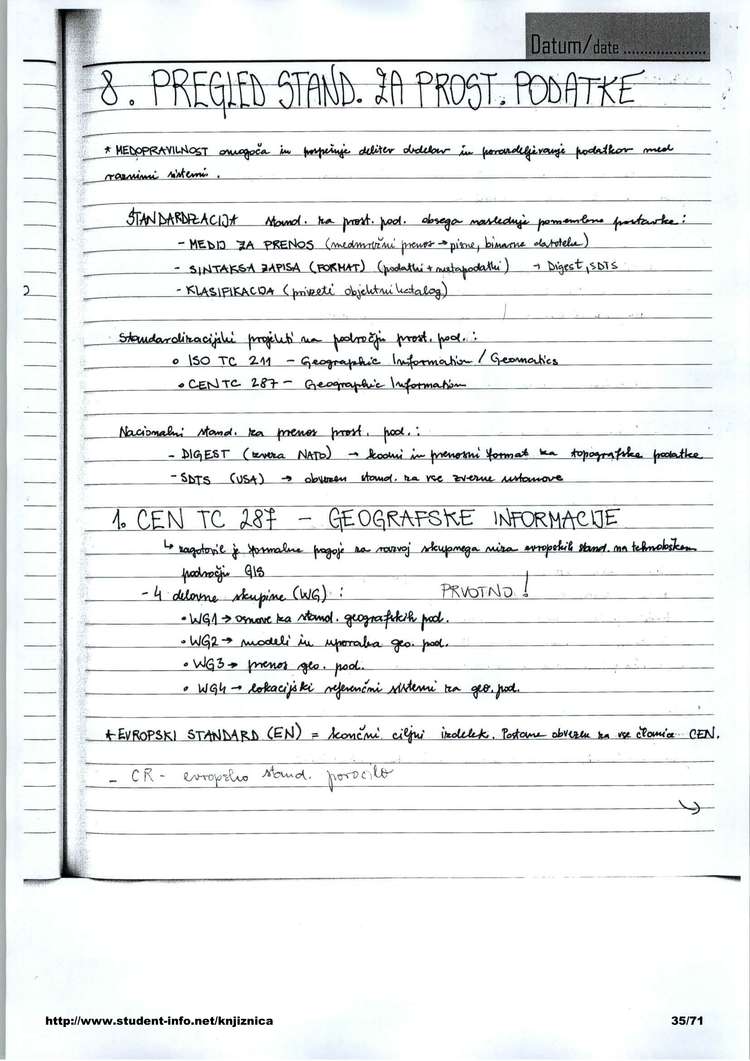 Datum/date ....................
8. PREGLED STAND. ZA PROST. PODATKE
* MEDOPRAVILNOST omogoča in pospešuje delitev obdelav in porazdeljevanje podatkov med
raznimi sistemi.
STANDARDIZACIJA stand. za prost. pod. obsega naslednje pomembne postavke:
- MEDIJ ZA PRENOS (medmrežni prenos → pisne, binarne datoteke)
- SINTAKSA ZAPISA (FORMAT) (podatki + metapodatki) → Digest, SDTS
- KLASIFIKACIJA (privzeti objektni katalog)
Standardizacijski projekti na področju prost. pod.:
o ISO TC 211 - Geographic Information / Geomatics
• CEN TC 287 - Geographic Information
Nacionalni stand. za prenos prost. pod.:
- DIGEST (zveza NATO) → kodni in prenosni format za topografske podatke
- SDTS (USA) → obvezen stand. za vse zvezne ustanove
1. CEN TC 287 - GEOGRAFSKE INFORMACIJE
↳ zagotovil je formalne pogoje za razvoj skupnega niza evropskih stand. na tehnološkem
področju GIS
- 4 delovne skupine (WG): PRVOTNO!
• WG1 → osnove za stand. geografskih pod.
• WG2 → modeli in uporaba geo. pod.
• WG3 → prenos geo. pod.
• WG4 → lokacijski referenčni sistemi za geo. pod.
* EVROPSKI STANDARD (EN) = končni ciljni izdelek. Postane obvezen za vse članice CEN.
- CR - evropsko stand. poročilo
http://www.student-info.net/knjiznica 35/71